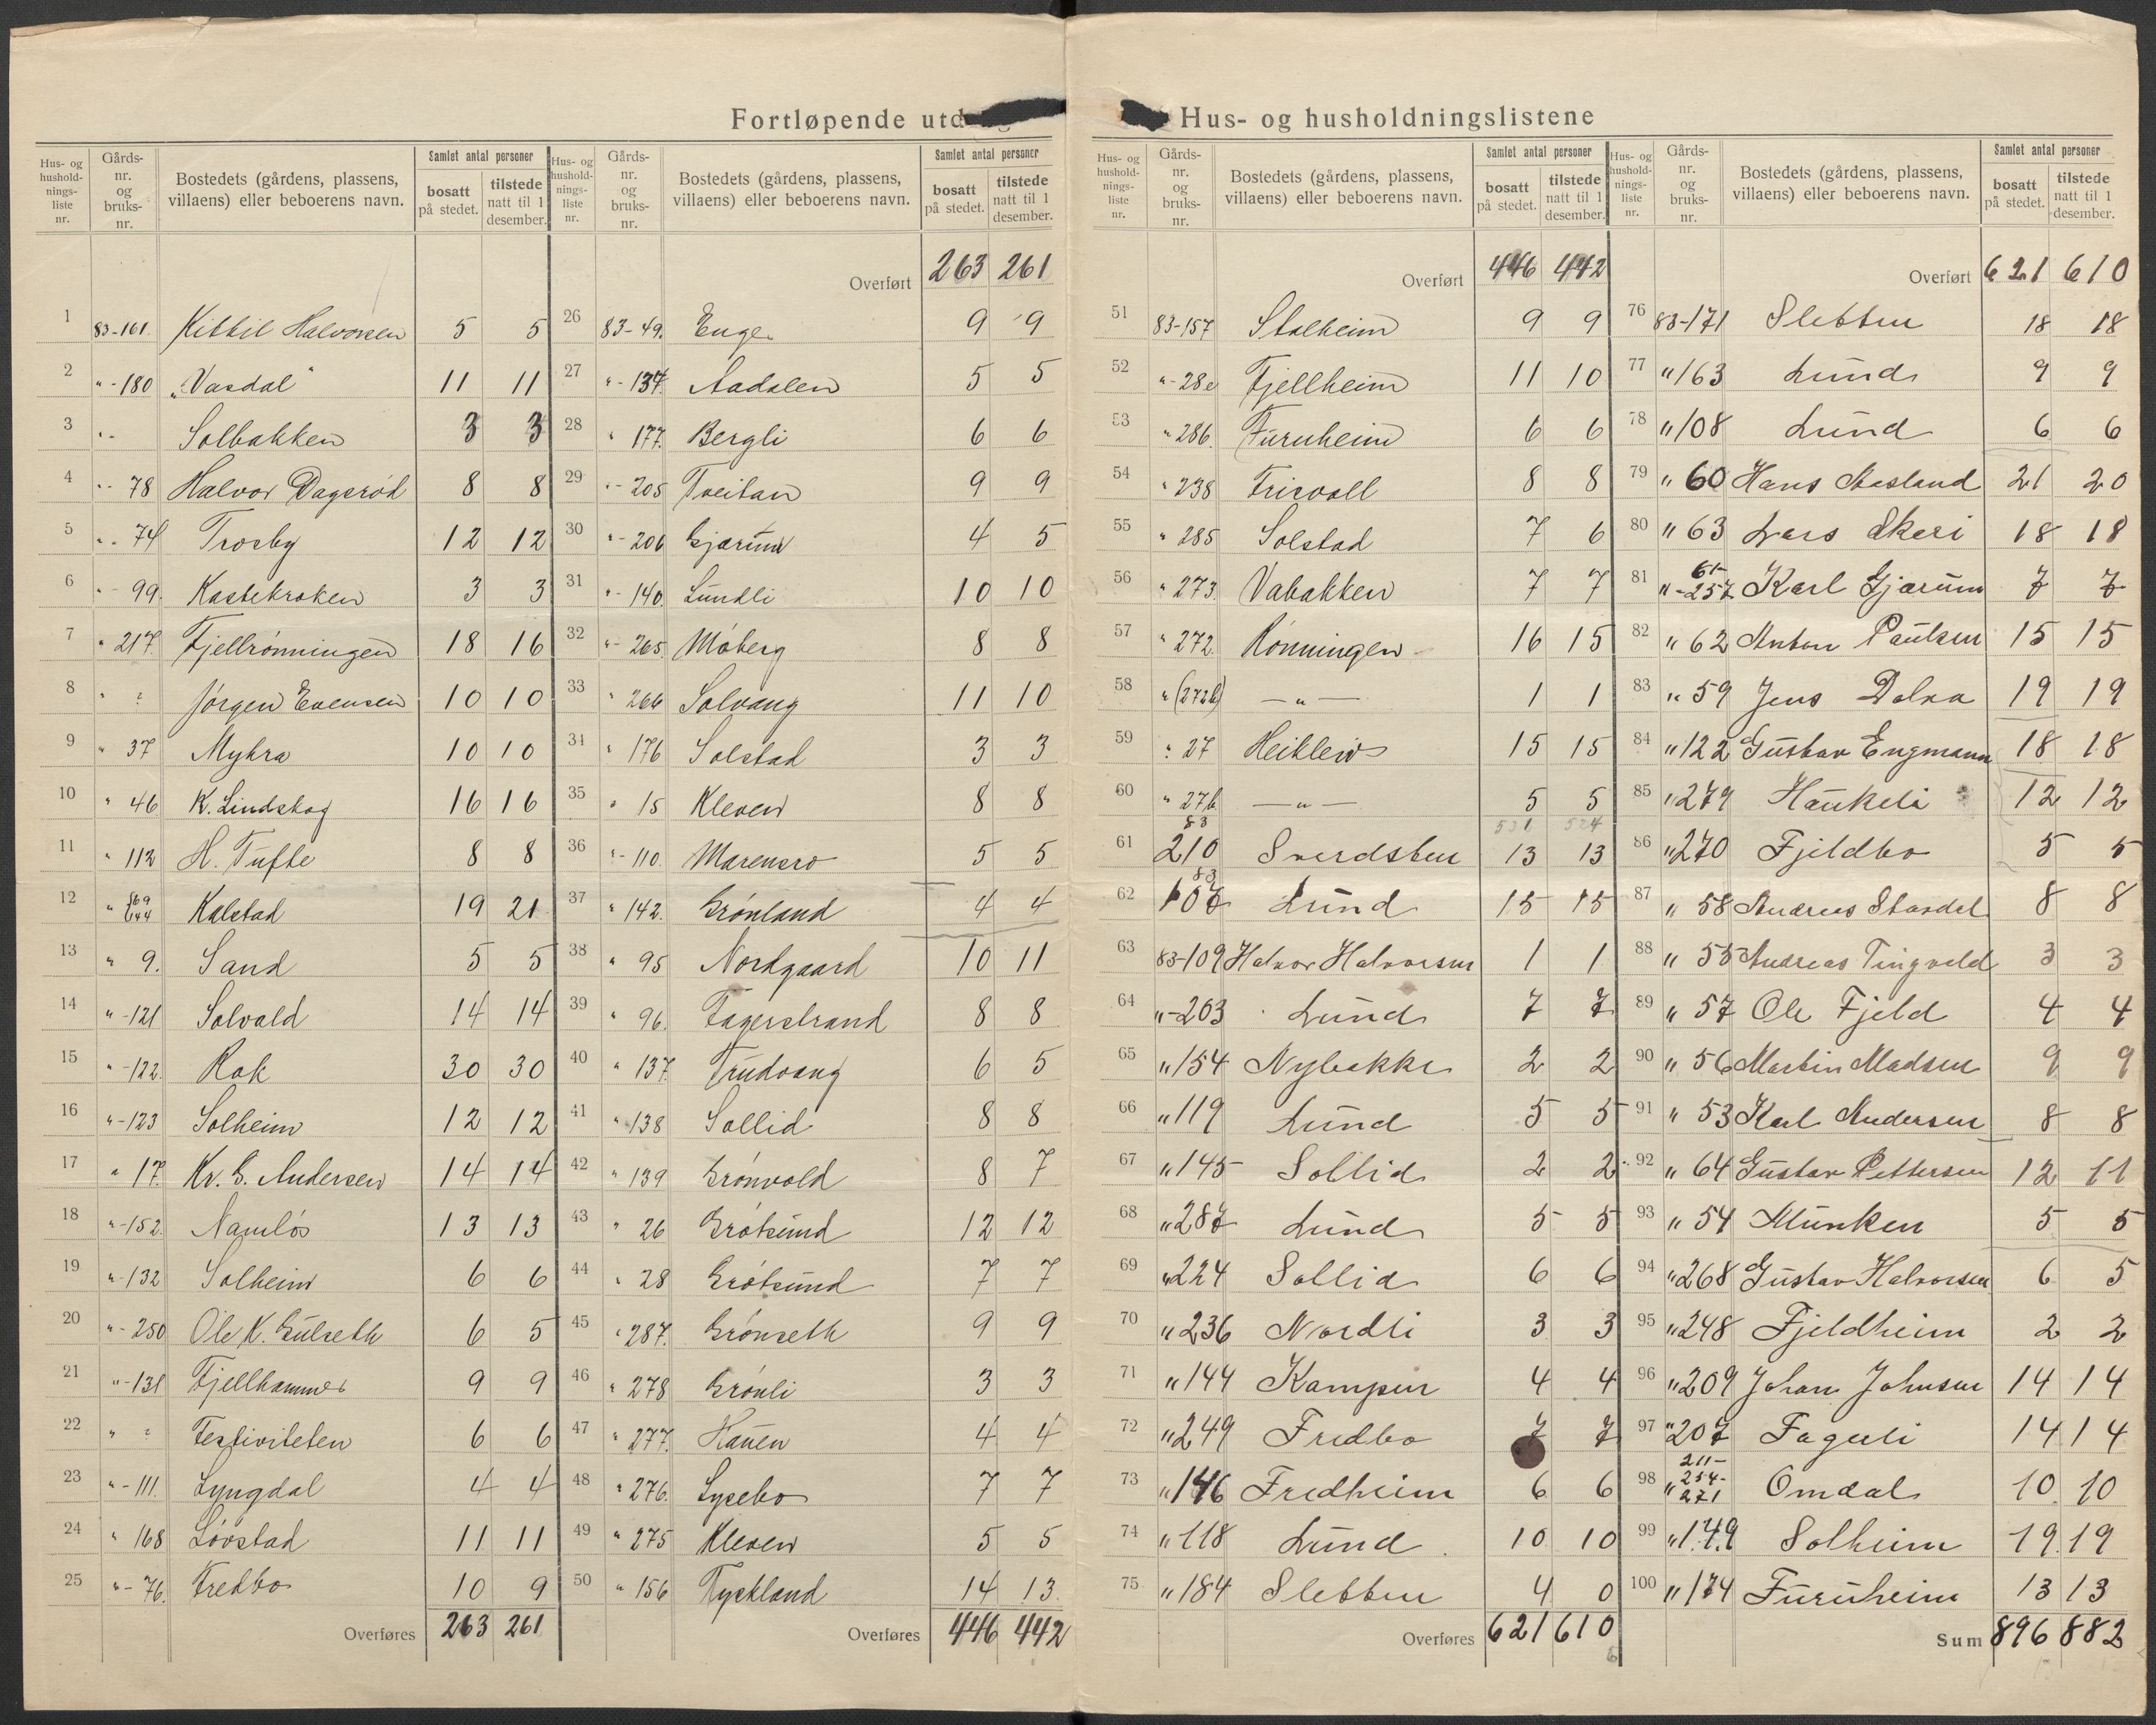 Fortløpende utd g Hus- og husholdningslistene
Hus- og hushold-nings-liste nr. Gårds-nr. og bruks-nr. Bostedets (gårdens, plassens, villaens) eller beboerens navn. Samlet antal personer bosatt på stedet. tilstede natt til 1 desember.
1 83-161. Kittil Halvorsen 5 5
2 "-180 „Vasdal" 11 11
3 "- Solbakken 3 3
4 "- 78 Halvor Dagsrød 8 8
5 "- 74 Trosby 12 12
6 "- 99. Kastekroken 3 3
7 " 217. Fjellrønningen 18 16
8 " : Jørgen Evensen 10 10
9 " 37 Myhra 10 10
10 " 46 K. Lindskog 16 16
11 " 112 H. Tufte 8 8
12 " 169 144 Kalstad 19 21
13 " 9. Sand 5 5
14 "-121 Solvald 14 14
15 "-122. Rok 30 30
16 "-123 Solheim 12 12
17 " 17. Kr. G. Andersen 14 14
18 "-152. Namløs 13 13
19 "-132 Solheim 6 6
20 "-250 Ole K. Gulseth 6 5
21 "-131 Fjellhammer 9 9
22 " : Festiviteten 6 6
23 "-111. Lyngdal 4 4
24 " 168 Løvstad 11 11
25 "- 76. Fredbo 10 9
Overføres 263 261
Hus- og hushold-nings-liste nr. Gårds-nr. og bruks-nr. Bostedets (gårdens, plassens, villaens) eller beboerens navn. Samlet antal personer bosatt på stedet. tilstede natt til 1 desember.
Overført 263 261
26 83-49. Enge 9 9
27 "-134. Aadalen 5 5
28 " 177. Bergli 6 6
29 "-205 Tveitan 9 9
30 "-206 Gjærum 4 5
31 "-140. Lundli 10 10
32 "-265. Moberg 8 8
33 " 266 Solvang 11 10
34 " 176 Solstad 3 3
35 " 15 Kleven 8 8
36 "-110. Marensro 5 5
37 " 142. Grønland 4 4
38 " 95 Nordgaard 10 11
39 " 96. Fagerstrand 8 8
40 " 137. Trudvang 6 5
41 "-138 Sollid 8 8
42 " 139 Grønvold 8 7
43 " 26 Grøtsund 12 12
44 " 28 Grøtsund 7 7
45 " 287. Grønseth 9 9
46 " 278 Grønli 3 3
47 " 277. Hauen 4 4
48 " 276. Lysebo 7 7
49 " 275 Kleven 5 5
50 " 156 Tyskland 14 13
Overføres 446 442
Hus- og hushold-nings-liste nr. Gårds-nr. og bruks-nr. Bostedets (gårdens, plassens, villaens) eller beboerens navn. Samlet antal personer bosatt på stedet. tilstede natt til 1 desember.
Overført 446 442
51 83-157 Stalheim 9 9
52 "-28e Fjellheim 11 10
53 "286. Furuheim 6 6
54 " 238 Trivoll 8 8
55 " 285 Solstad 7 6
56 " 273. Vabakken 7 7
57 " 272. Rønningen 16 15
58 " (272b) —"— 1 1
59 " 27 Heiklein 15 15
60 " 27b —"— 5 5
531 524
61 83 210 Sverdsten 13 13
62 83 107 Lund 15 15
63 83-109 Halvor Halvorsen 1 1
64 "-203 Lund 7 7
65 "154 Nybakke 2 2
66 "119 Lund 5 5
67 "145 Sollid 2 2
68 "287 Lund 5 5
69 "224 Sollid 6 6
70 "236 Nordli 3 3
71 "144 Kampen 4 4
72 "249 Fredbo 7 7
73 "146 Fredheim 6 6
74 "118 Lund 10 10
75 "184 Sletten 4 0
Overføres 621 610
Hus- og hushold-nings-liste nr. Gårds-nr. og bruks-nr. Bostedets (gårdens, plassens, villaens) eller beboerens navn. Samlet antal personer bosatt på stedet. tilstede natt til 1 desember.
Overført 621 610
76 83-171 Sletten 18 18
77 "163 Lund 9 9
78 "108 Lund 6 6
79 " 60 Hans Aasland 21 20
80 " 63 Lars Skeri 18 18
81 "61-257 Karl Gjærum 7 7
82 " 62 Anton Paulsen 15 15
83 " 59 Jens Dalva 19 19
84 "122 Gustav Engmann 18 18
85 "279 Haukeli 12 12
86 "270 Fjeldbo 5 5
87 " 58 Andreas Stavdal 8 8
88 " 55 Andreas Tingveld 3 3
89 " 57 Ole Fjeld 4 4
90 " 56 Martin Madsen 9 9
91 " 53 Karl Andersen 8 8
92 " 64 Gustav Pettersen 12 11
93 " 54 Munken 5 5
94 "268 Gustav Halvorsen 6 5
95 "248 Fjeldheim 2 2
96 "209 Johan Johnsen 14 14
97 "207 Fagerli 14 14
98 "211-254-271 Omdal 10 10
99 "149 Solheim 19 19
100 "174 Furuheim 13 13
Sum 896 882